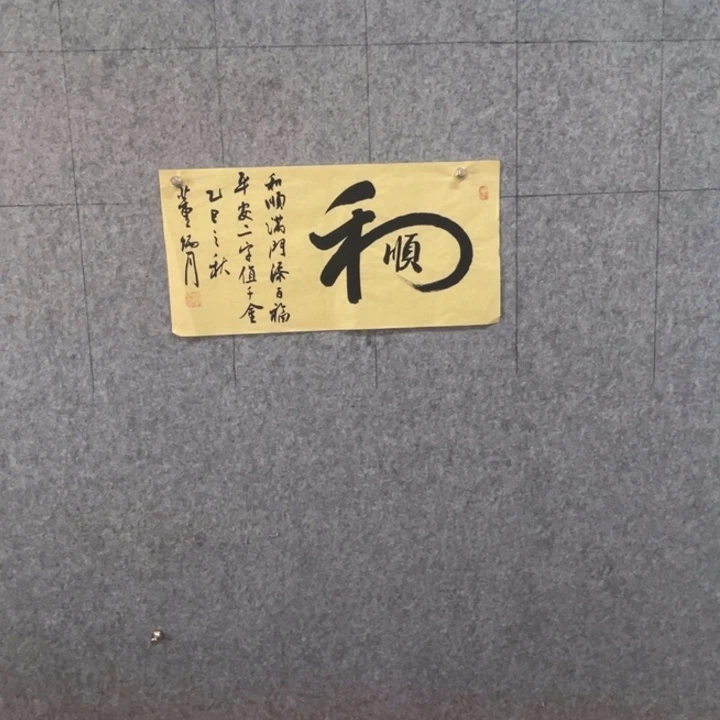 和順
和順滿門添百福
平安二字值千金
乙巳之秋
董炳月